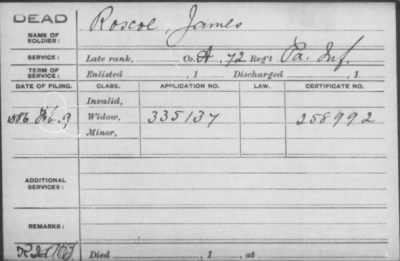 DEAD
NAME OF SOLDIER: Roscoe, James
SERVICE: Late rank, Co. A, 72 Reg't Pa. Inf.
TERM OF SERVICE: Enlisted , 1 Discharged , 1
DATE OF FILING. CLASS. APPLICATION NO. LAW. CERTIFICATE NO.
Invalid,
1886 Feb. 9 Widow, 335137 258992
Minor,
ADDITIONAL SERVICES:
REMARKS:
Died , 1 , at